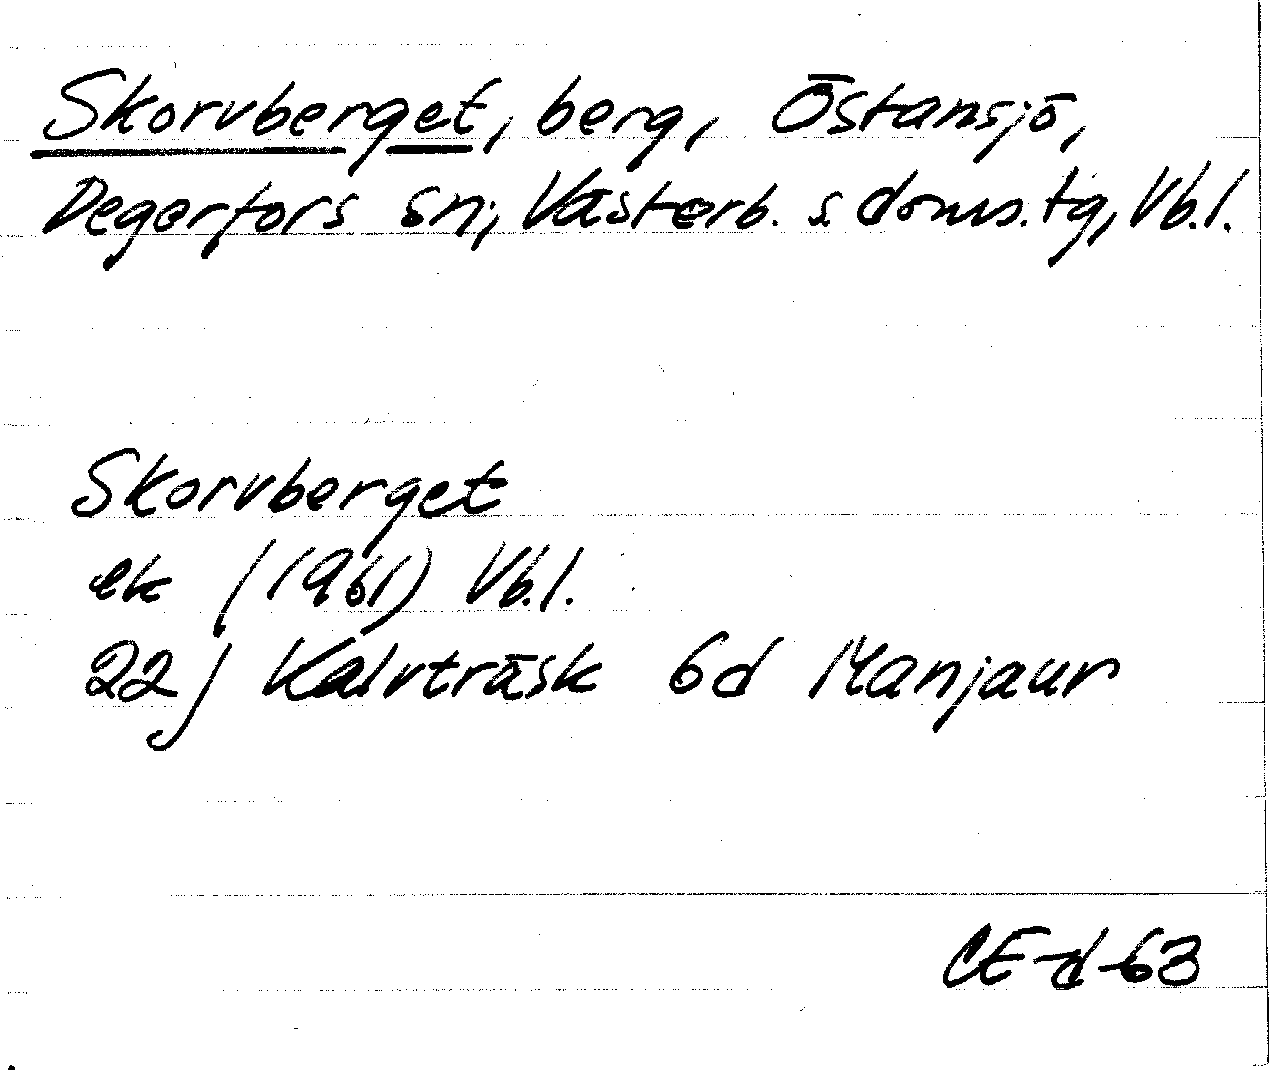 Skorvberget, berg, Östansjö,
Degerfors sn, Västerb. s. doms.tg, Vb.l.
Skorvberget
ek (1961) Vb.l.
22 J Kalvträsk 6d Manjaur
CE-d-63